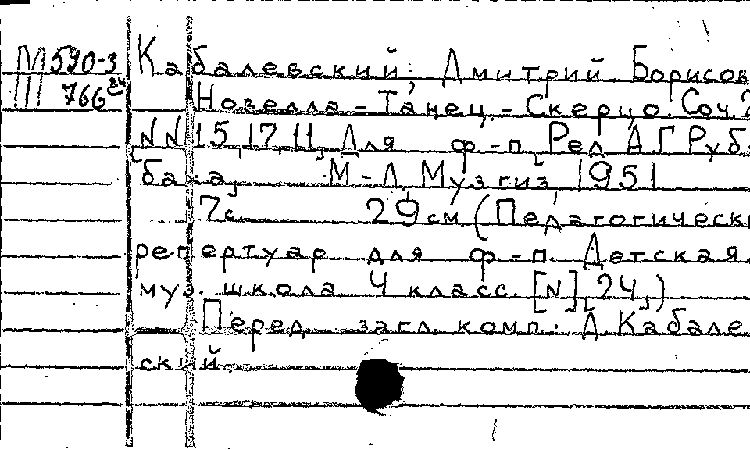 М 590-3
766 24
Кабалевский, Дмитрий Борисов
Новелла - Танец - Скерцо. Соч. 2
[NN 15, 17, 11] Для ф-п. [Ред. А. Г. Руб-
баха] М-Л. Музгиз, 1951
7 с. 29 см (Педагогическ
репертуар для ф-п. Детская
муз. школа 4 класс. [N] [24])
Перед загл. комп.: Д. Кабале
ский.